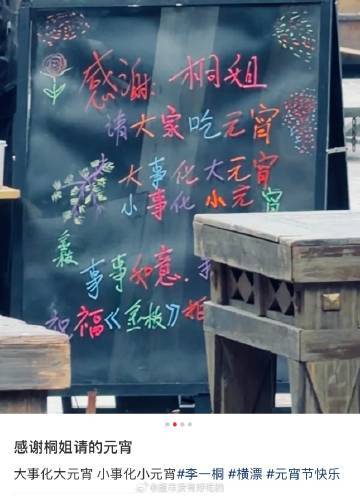 感谢:桐姐
请大家吃元宵
大事化大元宵
小事化小元宵
事事如意.
福《金枝》
感谢桐姐请的元宵
大事化大元宵 小事化小元宵#李一桐 #横漂 #元宵节快乐